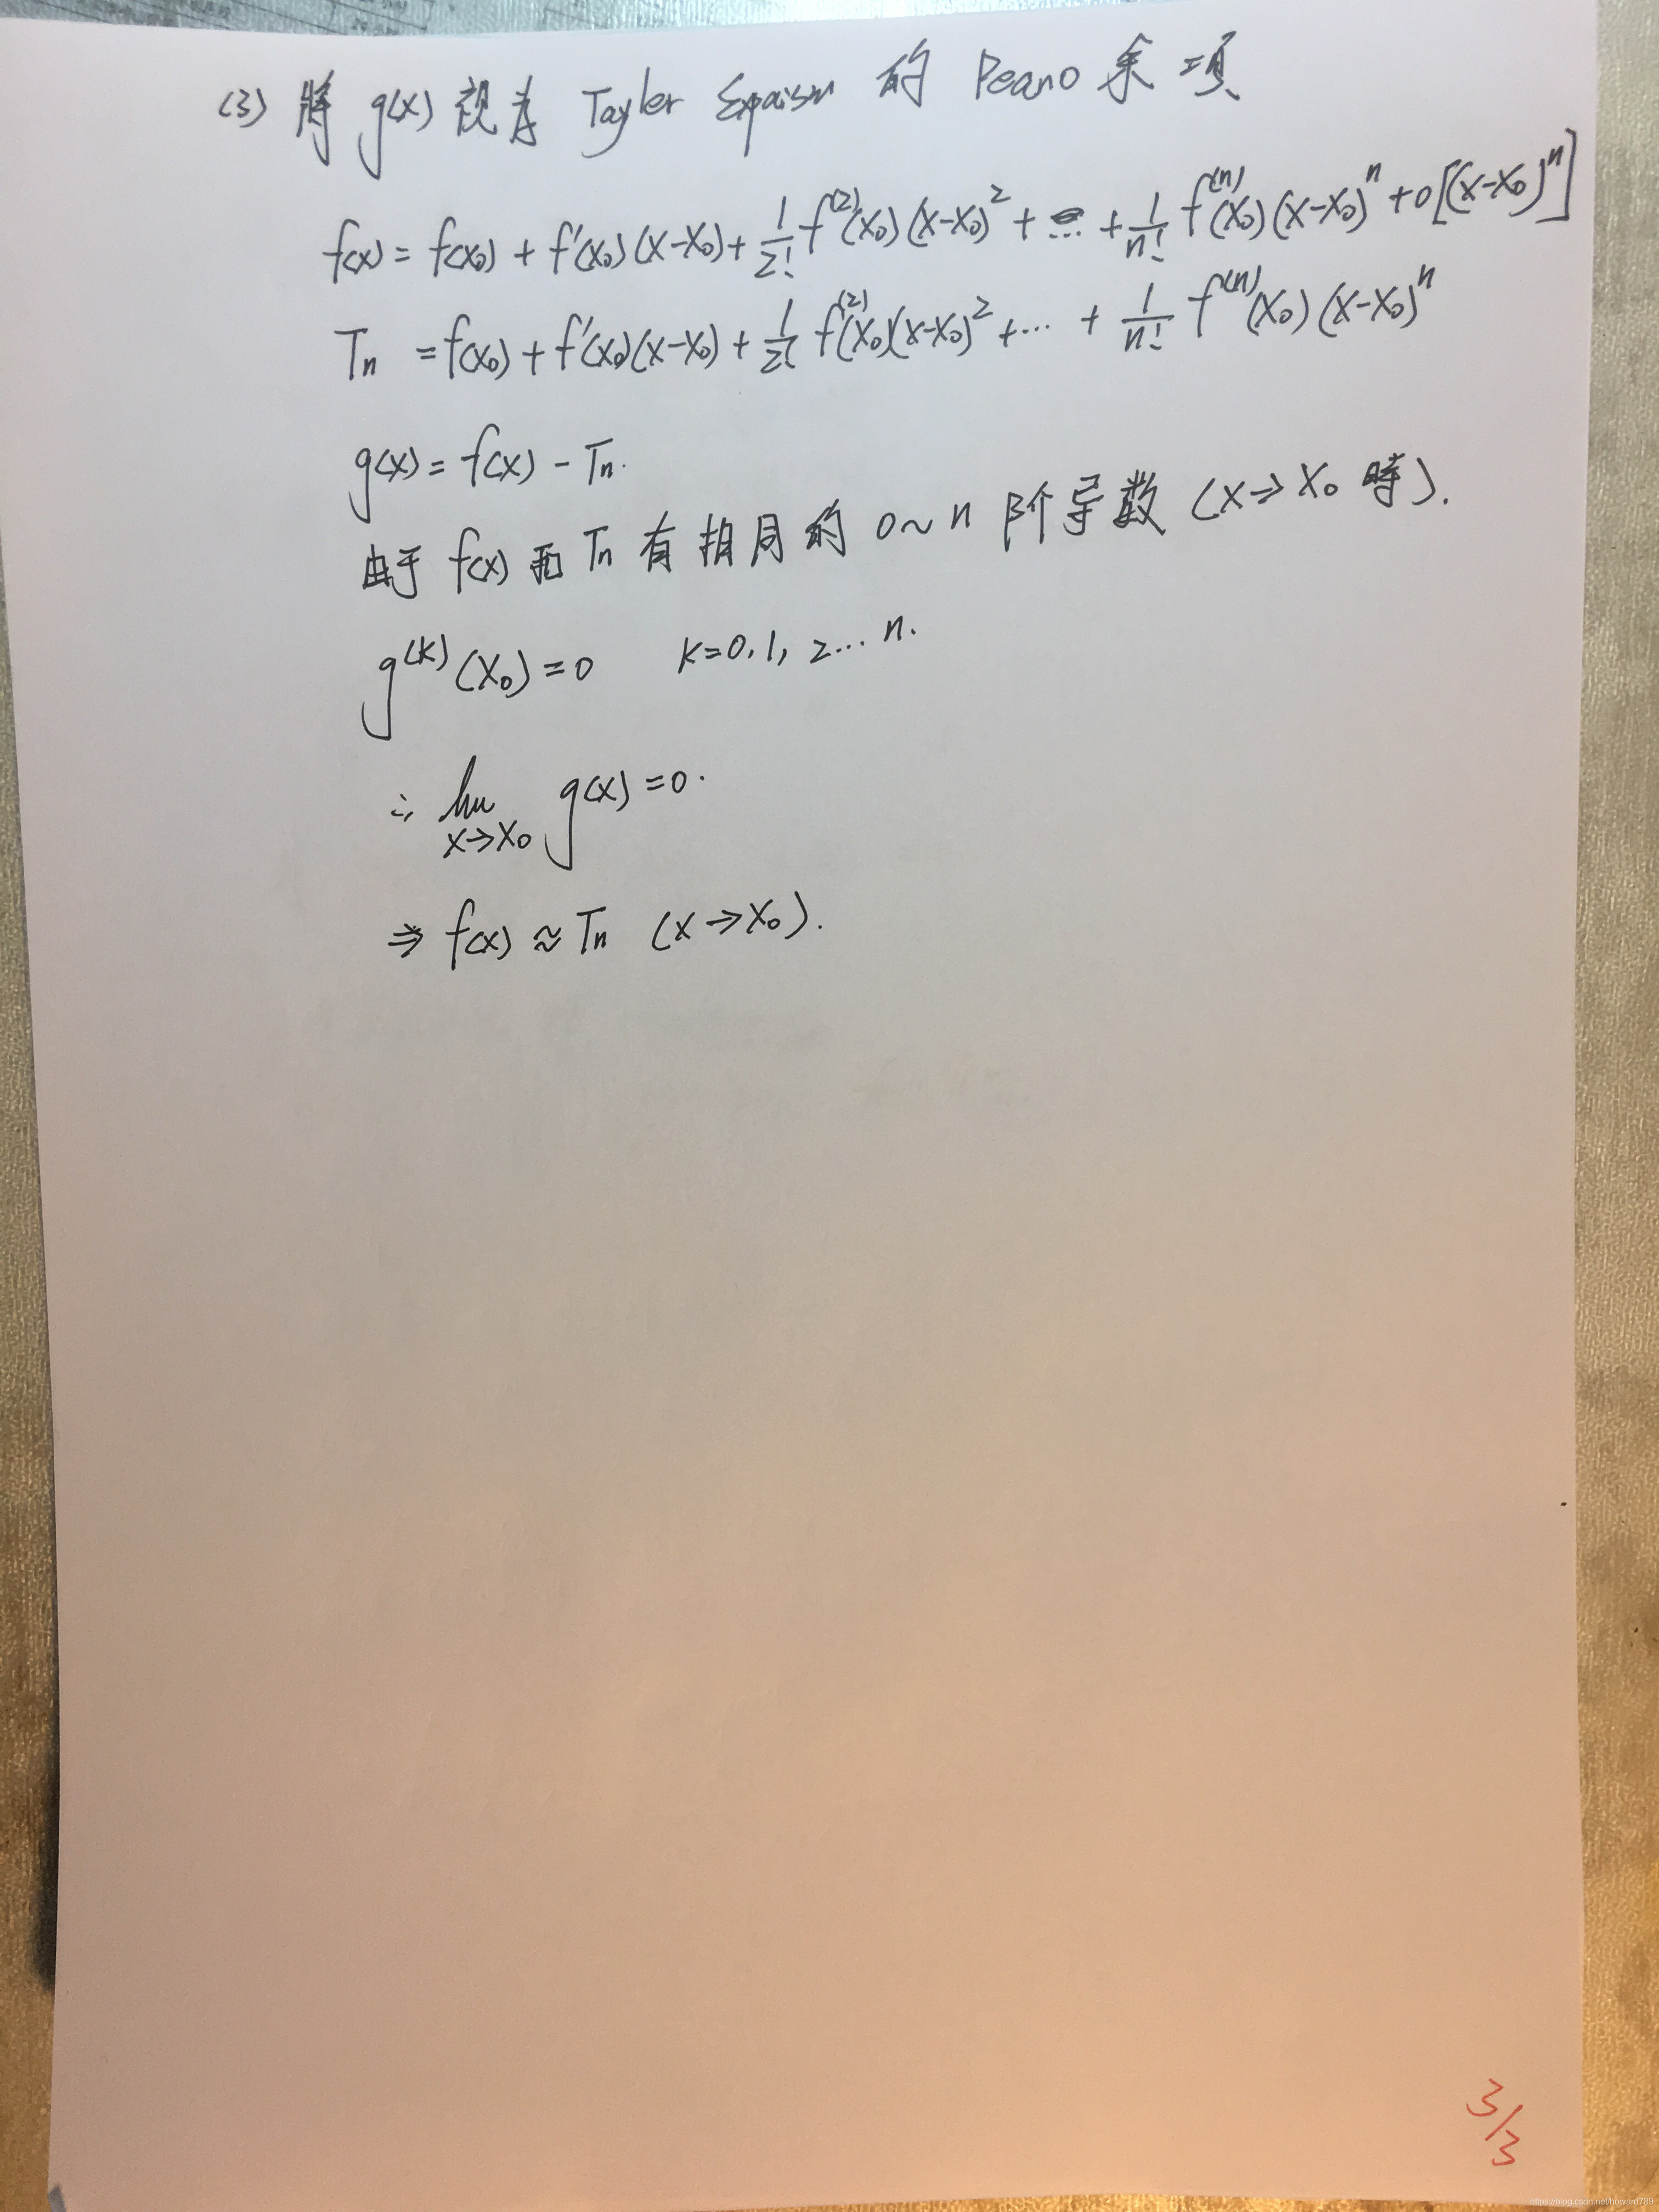 (3) 將 g(x) 視為 Tayler Expaism 的 Peano 余项
f(x) = f(x₀) + f'(x₀)(x-x₀) + 1/2! f⁽²⁾(x₀)(x-x₀)² + ... + 1/n! f⁽ⁿ⁾(x₀)(x-x₀)ⁿ + o[(x-x₀)ⁿ]
Tn = f(x₀) + f'(x₀)(x-x₀) + 1/2! f⁽²⁾(x₀)(x-x₀)² + ... + 1/n! f⁽ⁿ⁾(x₀)(x-x₀)ⁿ
g(x) = f(x) - Tn.
由于 f(x) 和 Tn 有相同的 0~n 阶导数 (x→x₀ 時).
g⁽ᵏ⁾(x₀) = 0 k=0,1,2...n.
∴ lim x→x₀ g(x) = 0.
⇒ f(x) ≈ Tn (x→x₀).
3/3
https://blog.csdn.net/howard789